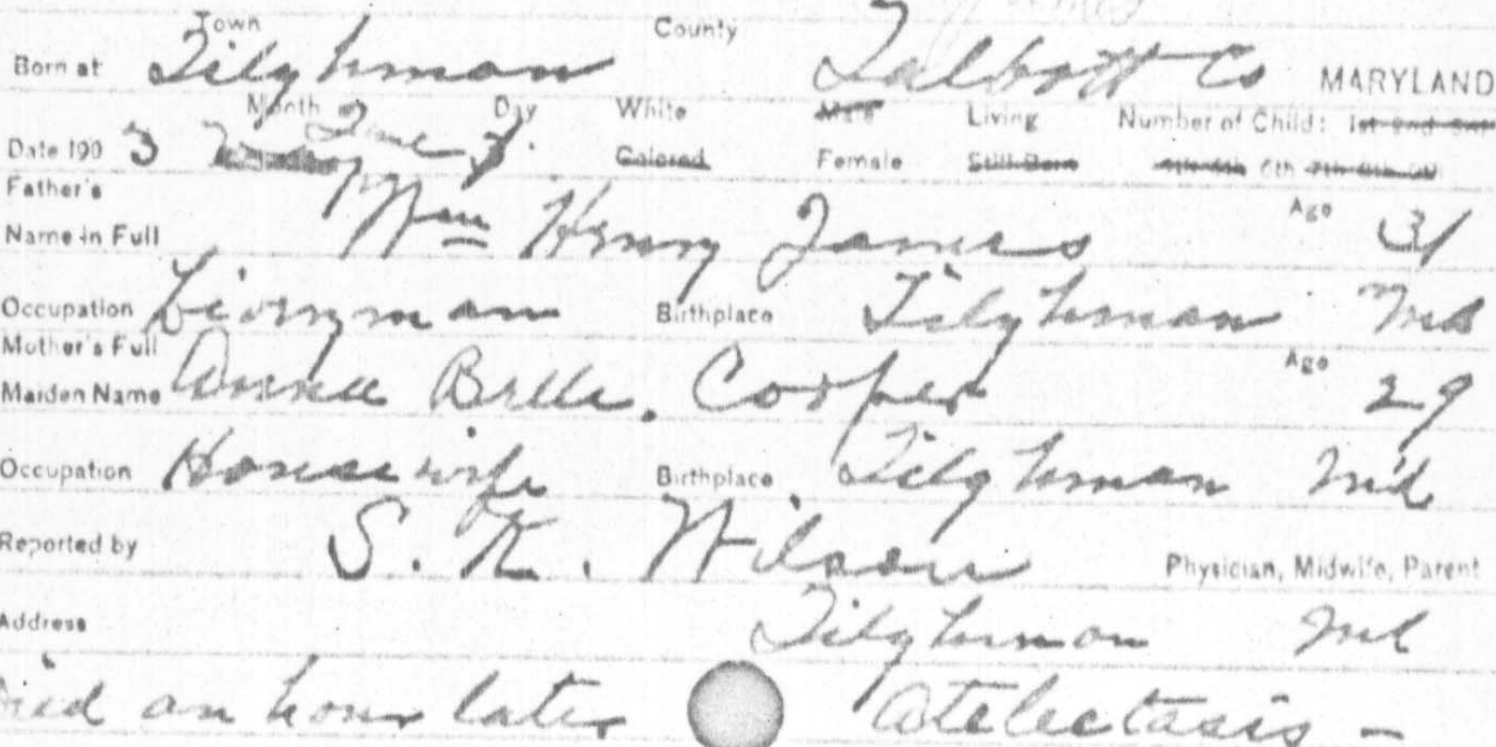 Town County
Born at Tilghman Talbott Co MARYLAND
Month Day White Male Living Number of Child: 1st 2nd 3rd
Date 190 3 Colored Female Still Born 6th
Father's
Name in Full Wm Henry James Age 31
Occupation Liveryman Birthplace Tilghman Md
Mother's Full
Maiden Name Annie Belle Cooper Age 29
Occupation Housewife Birthplace Tilghman Md
Reported by S. K. Wilson Physician, Midwife, Parent
Address Tilghman Md
Died an hour later Atelectasis -